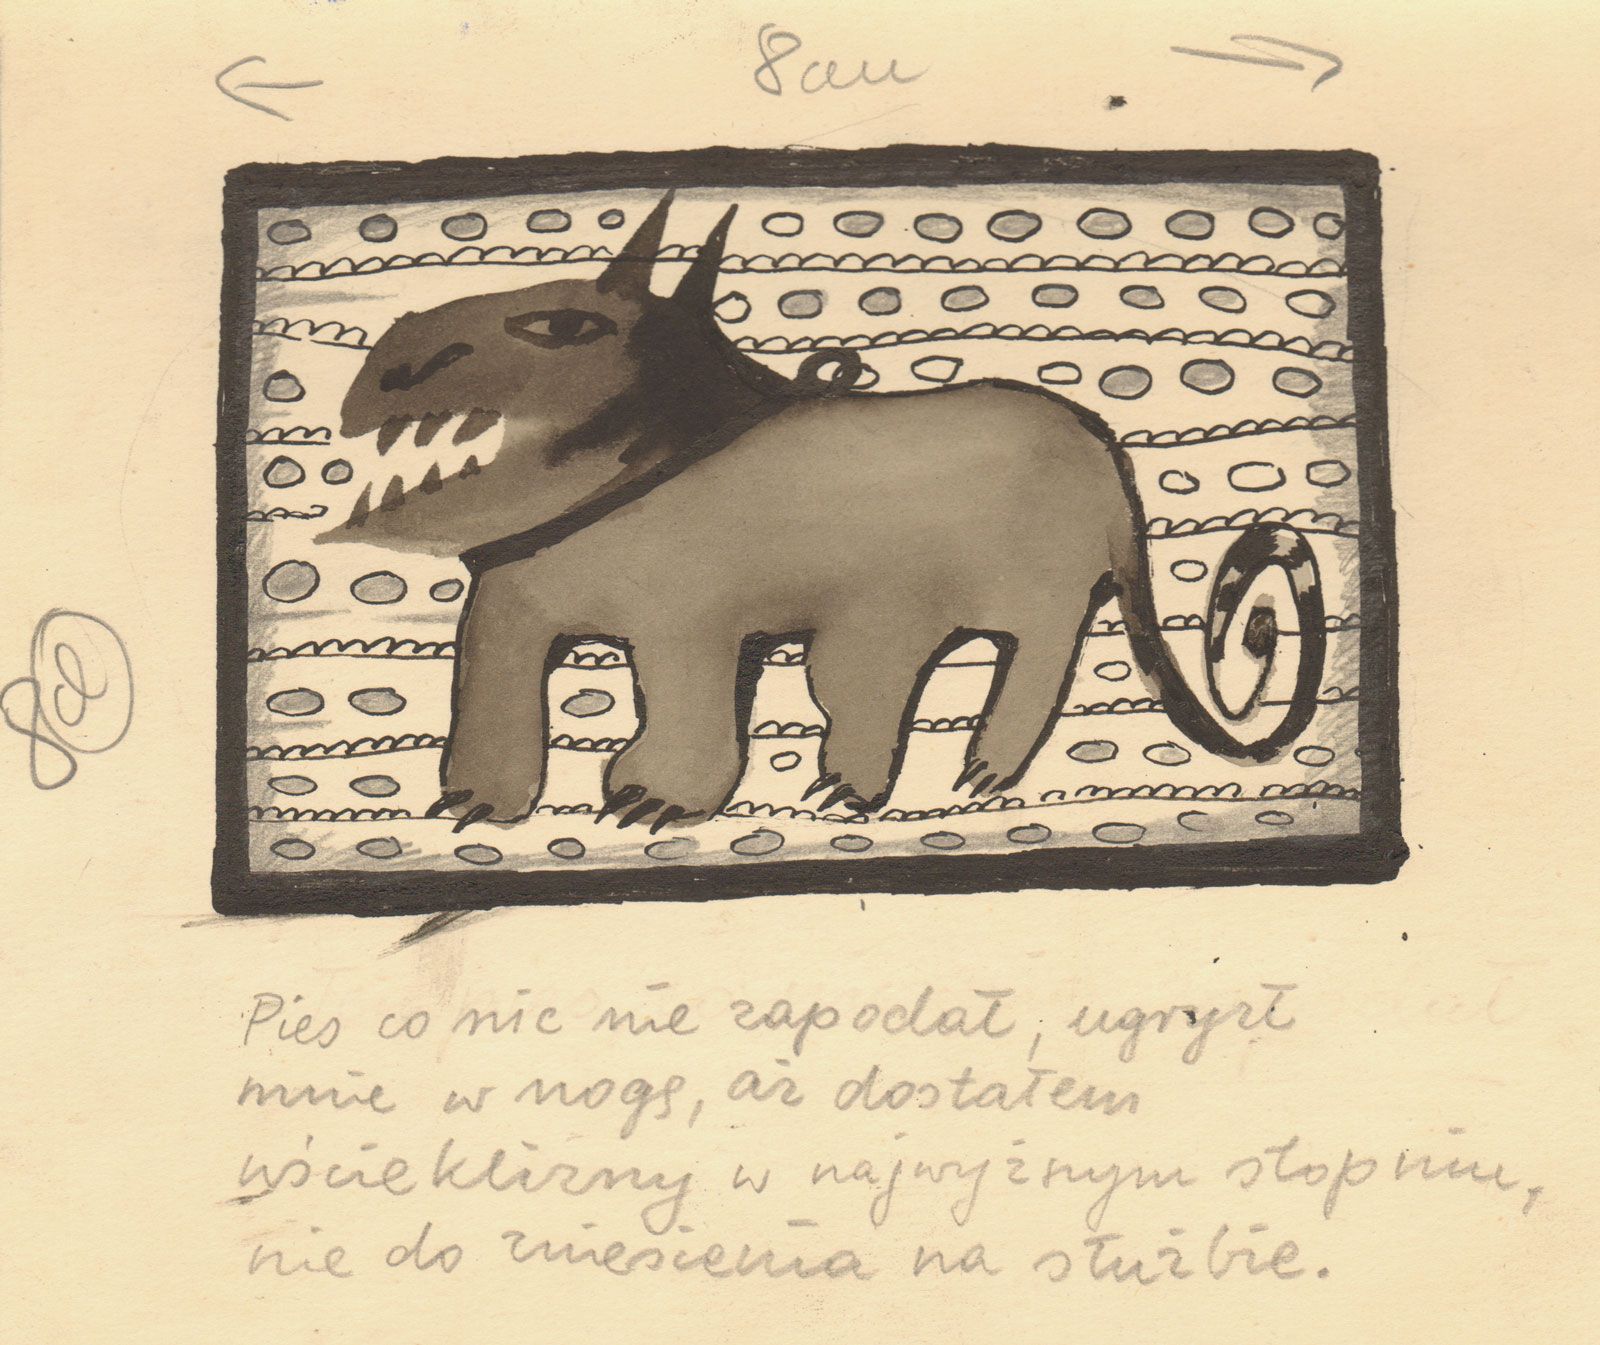 8cm
8d
Pies co nic nie zapodał, ugryzł
mnie w nogę, aż dostałem
wścieklizny w najwyżnym stopniu,
nie do zniesienia na służbie.